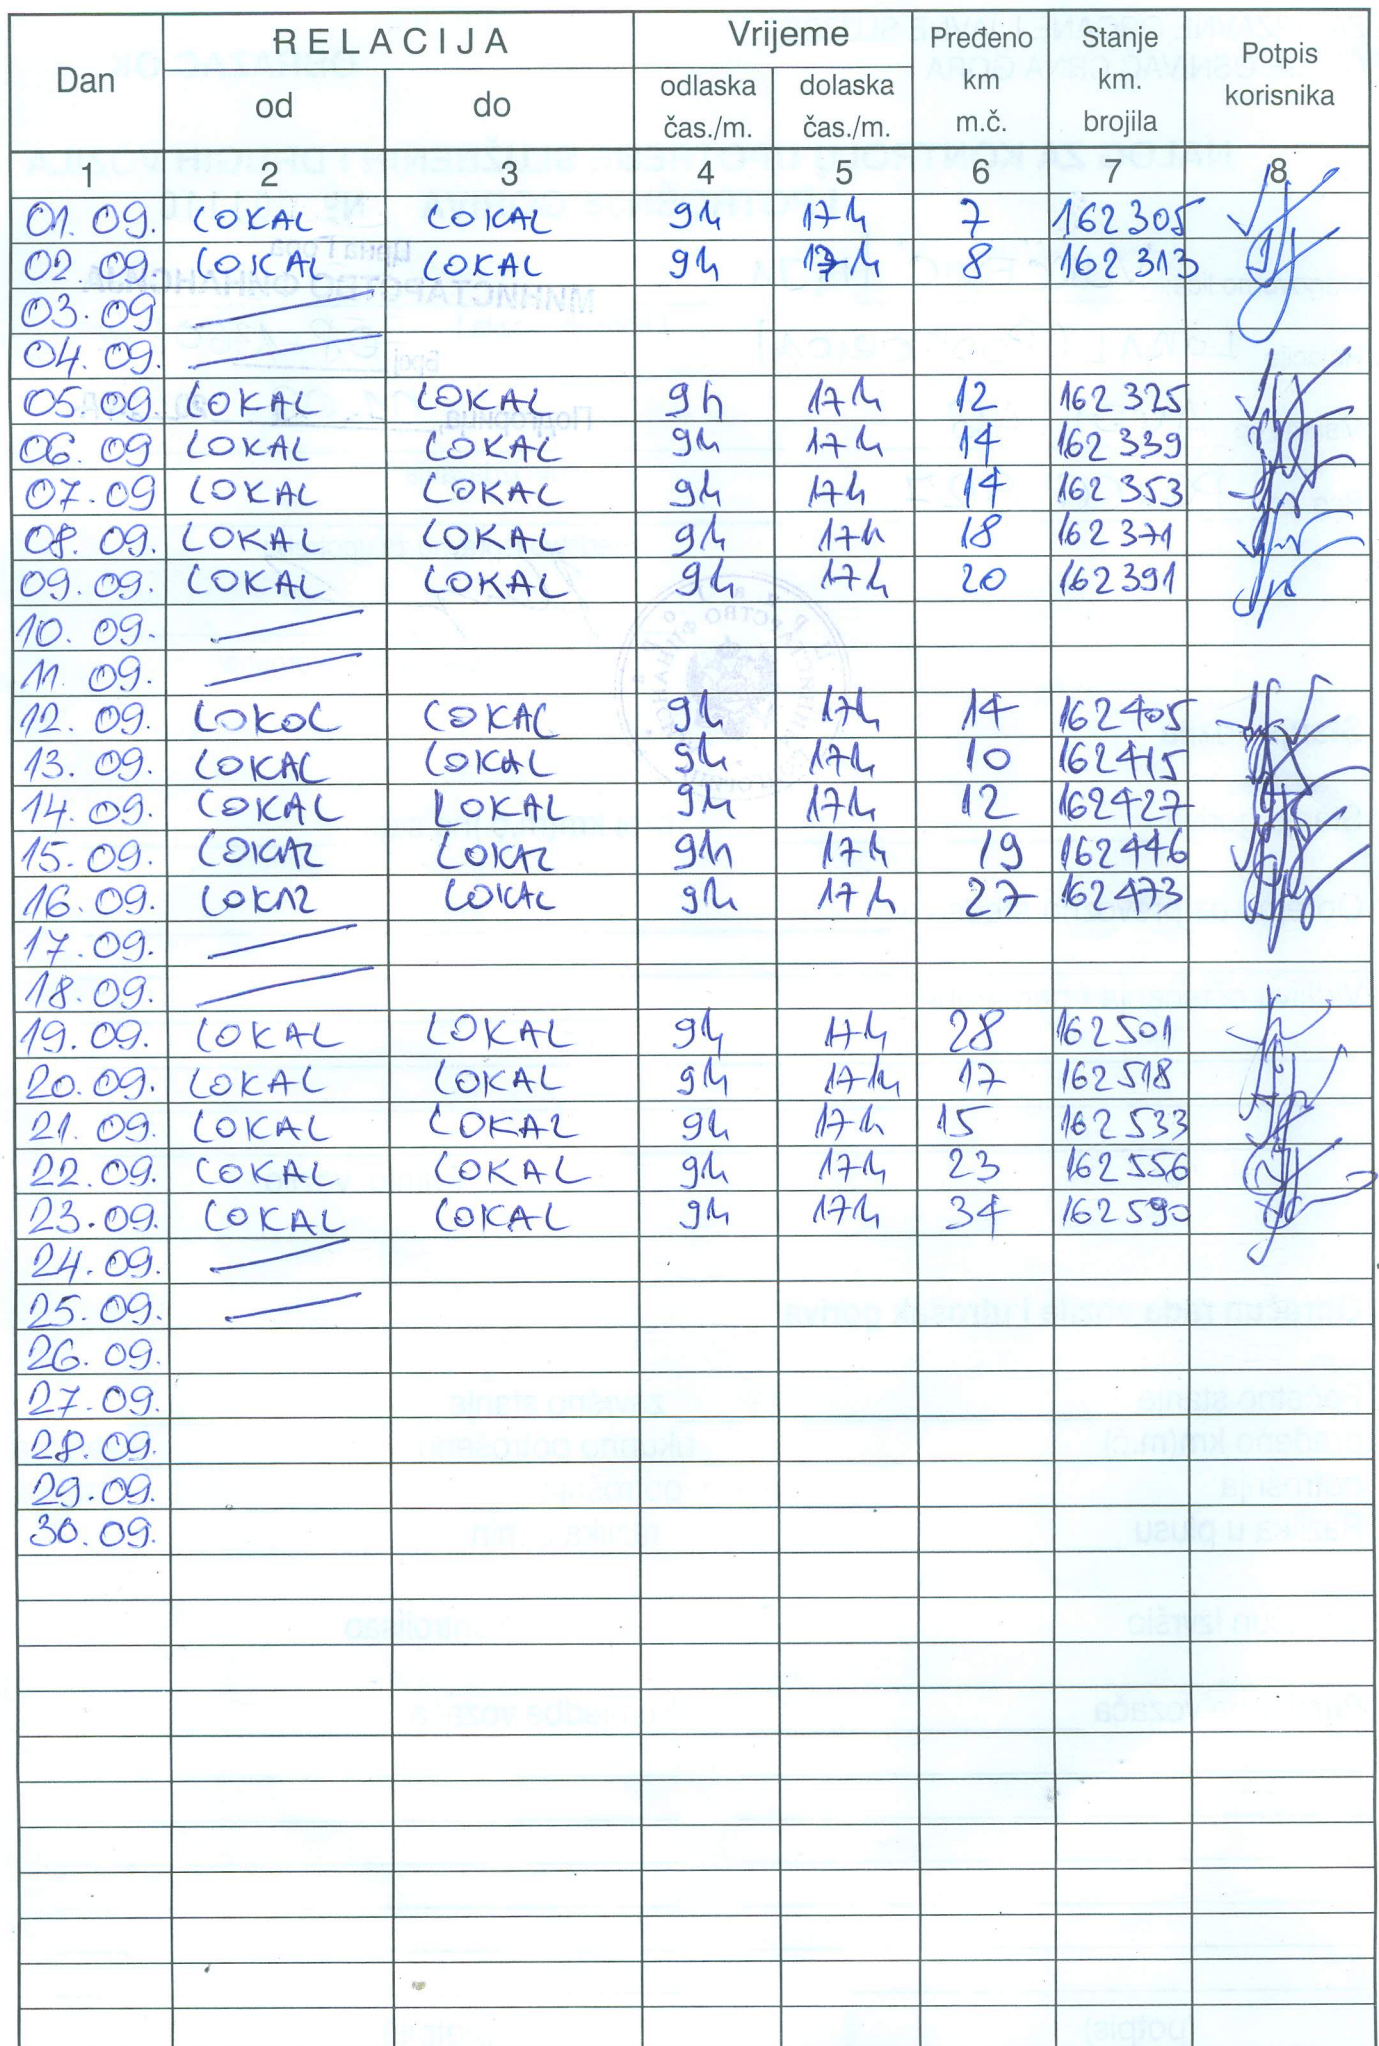 Dan RELACIJA Vrijeme Pređeno km m.č. Stanje km. brojila Potpis korisnika
od do odlaska čas./m. dolaska čas./m.
1 2 3 4 5 6 7 8
01.09. LOKAL LOKAL 9h 17h 7 162305
02.09. LOKAL LOKAL 9h 17h 8 162313
03.09
04.09.
05.09. LOKAL LOKAL 9h 17h 12 162325
06.09 LOKAL LOKAL 9h 17h 14 162339
07.09 LOKAL LOKAL 9h 17h 14 162353
08.09. LOKAL LOKAL 9h 17h 18 162371
09.09. LOKAL LOKAL 9h 17h 20 162391
10.09.
11.09.
12.09. LOKOL LOKAL 9h 17h 14 162405
13.09. LOKAL LOKAL 9h 17h 10 162415
14.09. LOKAL LOKAL 9h 17h 12 162427
15.09. LOKAL LOKAL 9h 17h 19 162446
16.09. LOKAL LOKAL 9h 17h 27 162473
17.09.
18.09.
19.09. LOKAL LOKAL 9h 17h 28 162501
20.09. LOKAL LOKAL 9h 17h 17 162518
21.09. LOKAL LOKAL 9h 17h 15 162533
22.09. LOKAL LOKAL 9h 17h 23 162556
23.09. LOKAL LOKAL 9h 17h 34 162590
24.09.
25.09.
26.09.
27.09.
28.09.
29.09.
30.09.